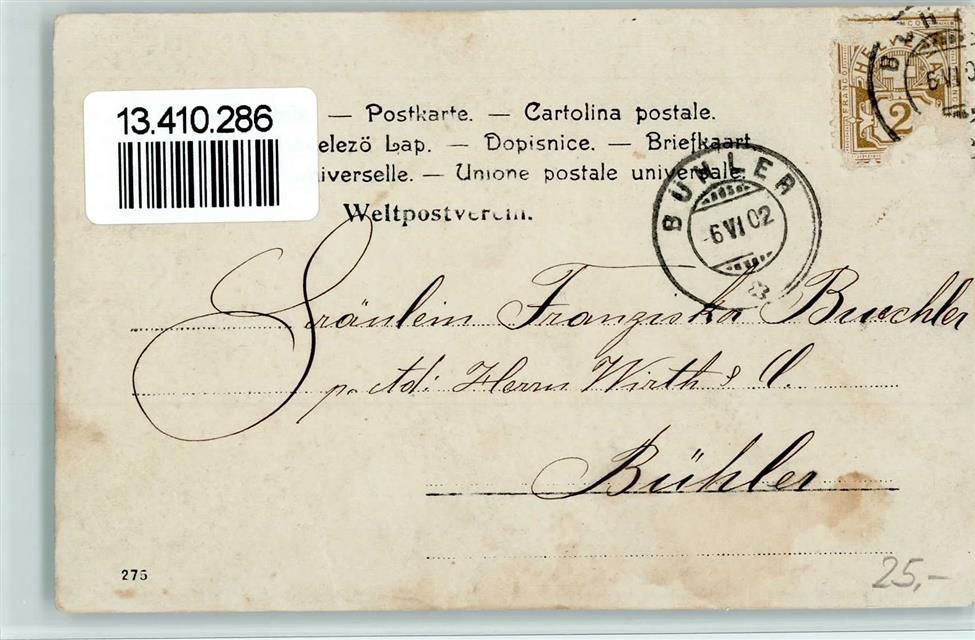 13.410.286
— Postkarte. — Cartolina postale.
Lap. — Dopisnice. — Briefkaart
— Unione postale universale.
Weltpostverein.
2
6 VI 0
BÜHLER
-6 VI 02
Fräulein Franziska Buechler
p. Ad: Herrn Wirth & C.
Bühler
275
25,-